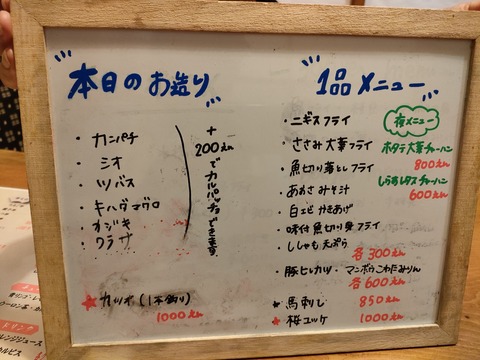 本日のお造り
・カンパチ
・シオ
・ツバス
・キハダマグロ
・オジキ
・ワラサ
+200えんでカルパッチョできます
★カツオ(1本釣り)
1000えん
1品メニュー
・ニギスフライ
・ささみ大葉フライ
・魚切り落としフライ
・あおさみそ汁
・白エビかきあげ
・味付魚切り身フライ
・ししゃも天ぷら
各300えん
・豚ヒレカツ・マンボウこわたみりん
各600えん
★馬刺し 850えん
★桜ユッケ 1000えん
夜メニュー
ホタテ大葉チャーハン
800えん
しらすレタスチャーハン
600えん